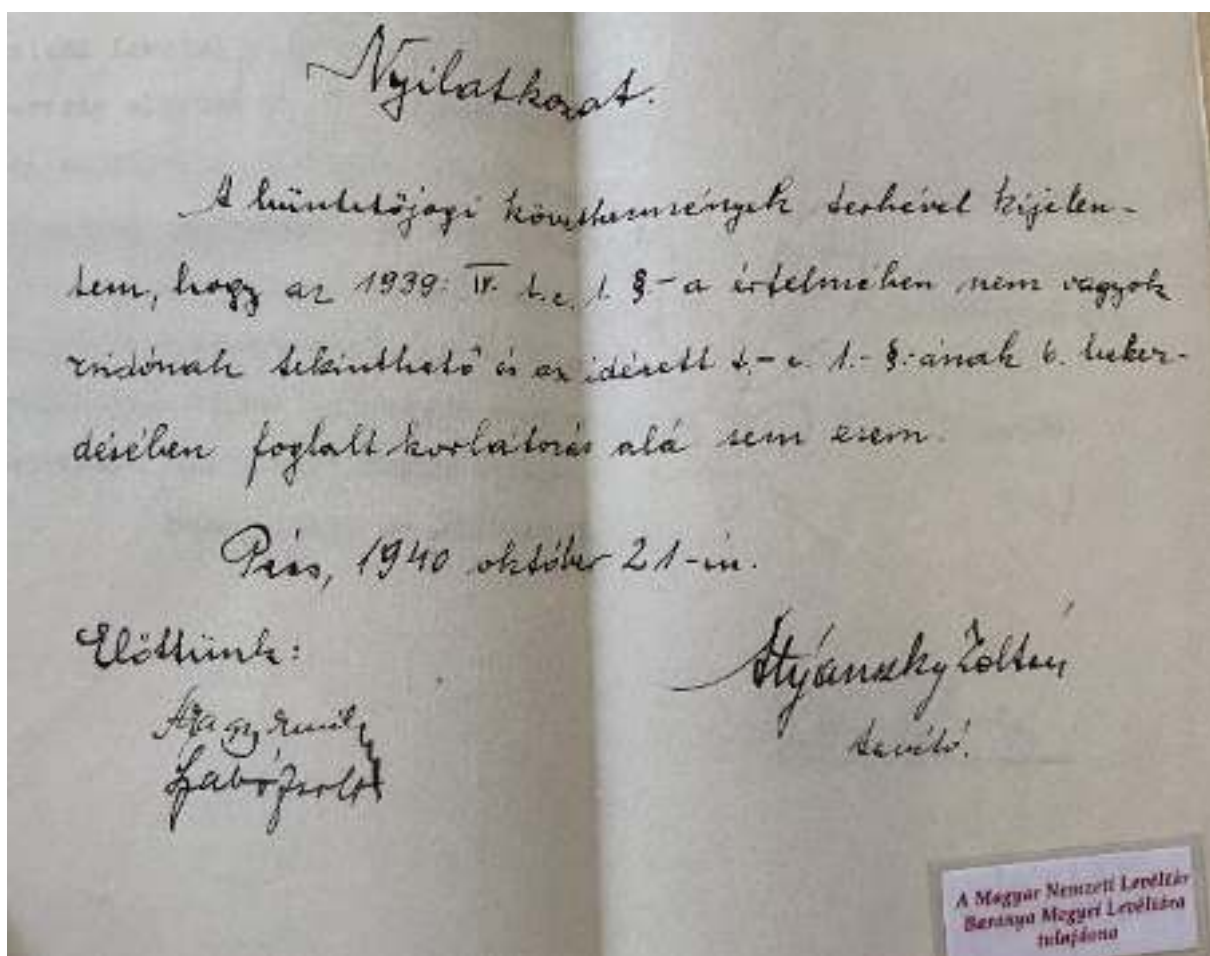 Nyilatkozat.
A büntetőjogi következmények terhével kijelen-
tem, hogy az 1939: IV. t.c. 1. §-a értelmében nem vagyok
zsidónak tekinthető és az idézett t.-c. 1.-§.-ának 6. bekez-
désében foglalt korlátozás alá sem esem.
Pécs, 1940 október 21-én.
Előttünk:
Nagy Emil
Szabó Zsolt
Styánszky Zoltán
tanító.
A Magyar Nemzeti Levéltár
Baranya Megyei Levéltára
tulajdona